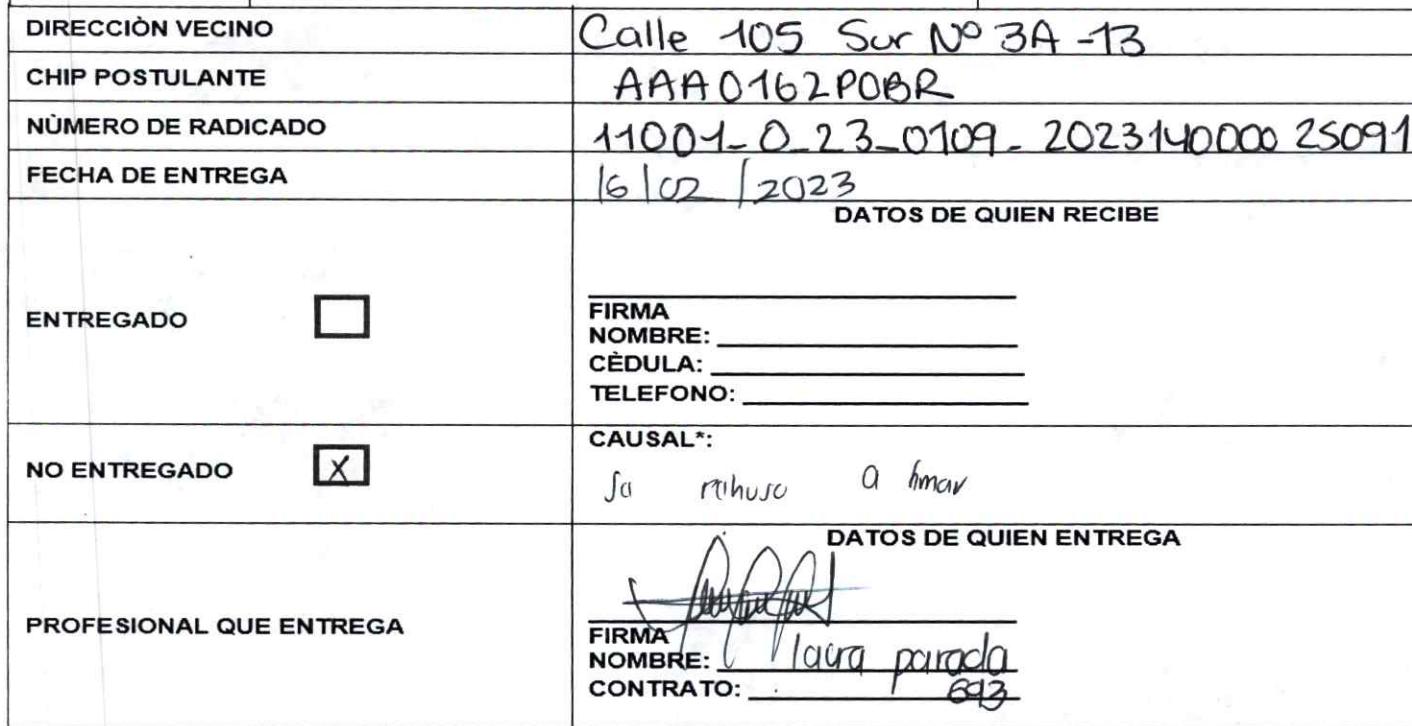 DIRECCIÒN VECINO Calle 105 Sur Nº 3A -13
CHIP POSTULANTE AAA0162POBR
NÙMERO DE RADICADO 11001_0_23_0109_ 2023140000 25091
FECHA DE ENTREGA 16/02/2023
DATOS DE QUIEN RECIBE
ENTREGADO
FIRMA
NOMBRE:
CÈDULA:
TELEFONO:
NO ENTREGADO X
CAUSAL*:
rehuso a
DATOS DE QUIEN ENTREGA
PROFESIONAL QUE ENTREGA
FIRMA
NOMBRE: laura parada
CONTRATO: 693